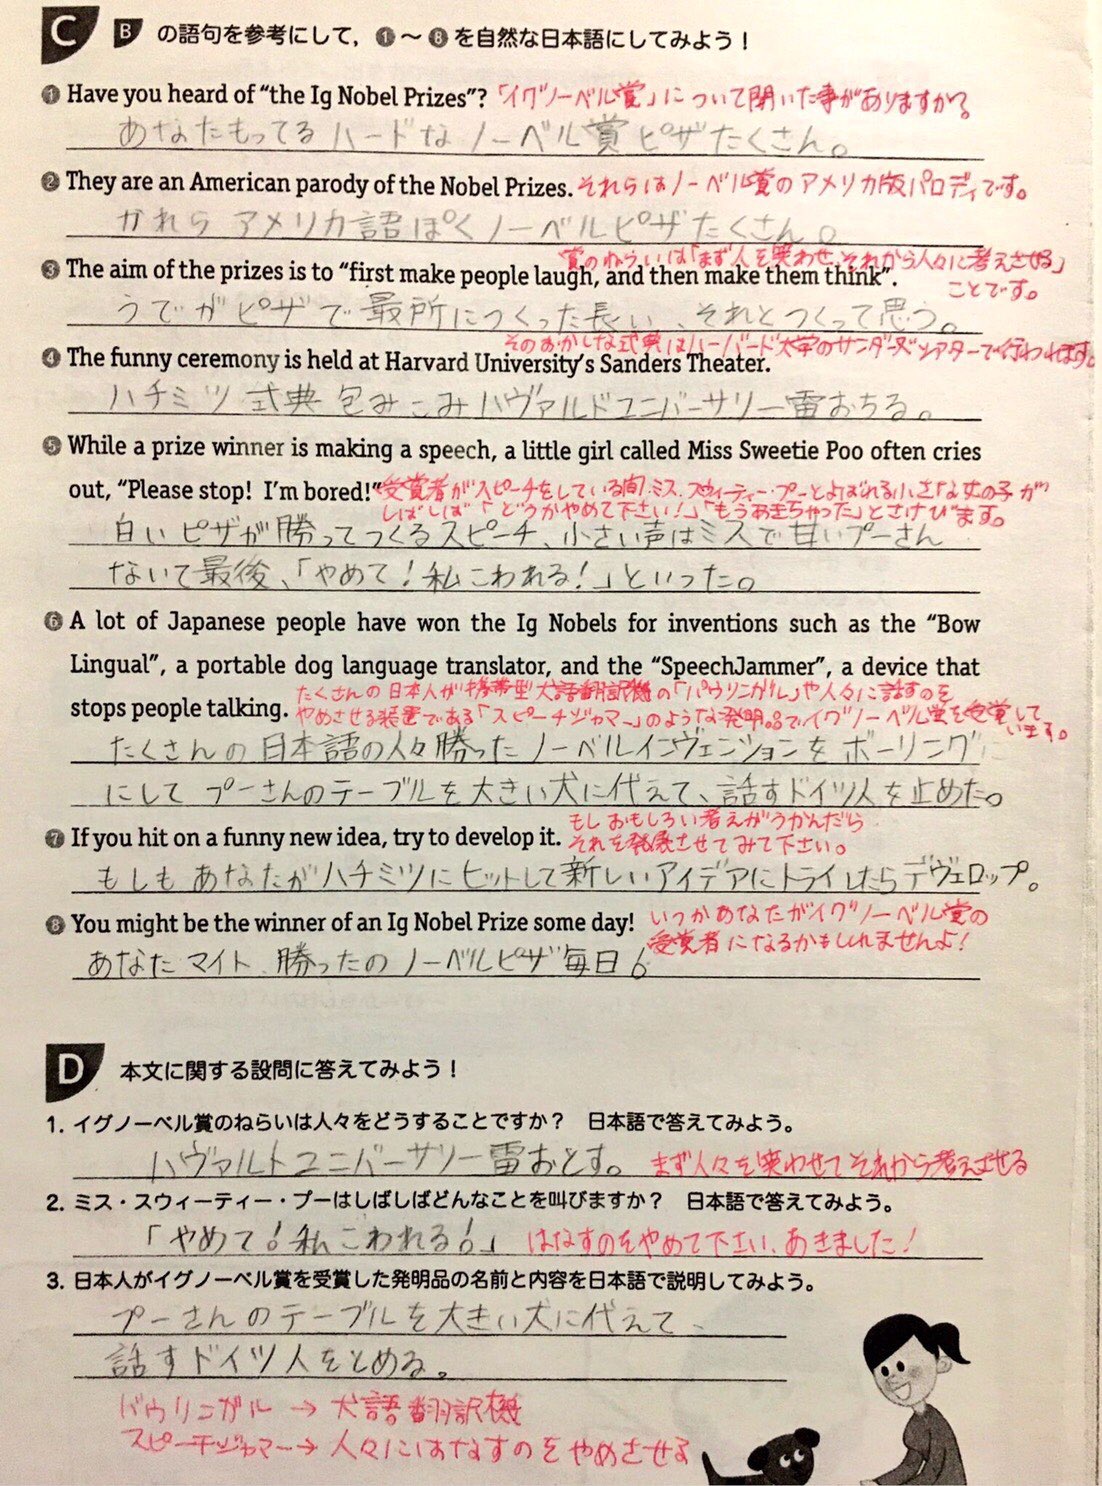 C B の語句を参考にして，❶～❽を自然な日本語にしてみよう！
❶ Have you heard of “the Ig Nobel Prizes”? 「イグノーベル賞」について聞いた事がありますか？
あなたもってるハードなノーベル賞ピザたくさん。
❷ They are an American parody of the Nobel Prizes. それらはノーベル賞のアメリカ版パロディです。
かれらアメリカ語ぽくノーベルピザたくさん。
賞のねらいは「まず人を笑わせ、それから人々に考えさせる」
❸ The aim of the prizes is to “first make people laugh, and then make them think”.
ことです。
うでがピザで最所につくった長い、それとつくって思う。
そのおかしな式典はハーバード大学のサンダーズシアターで行われます。
❹ The funny ceremony is held at Harvard University’s Sanders Theater.
ハチミツ式典包みこみハヴァルドユニバーサリー雷おちる。
❺ While a prize winner is making a speech, a little girl called Miss Sweetie Poo often cries
out, “Please stop! I’m bored!” 受賞者がスピーチをしている間、ミス・スウィーティー・プーとよばれる小さな女の子が
しばしば「どうかやめて下さい！」「もうあきちゃった」とさけびます。
白いピザが勝ってつくるスピーチ、小さい声はミスで甘いプーさん
ないて最後、「やめて！私こわれる！」といった。
❻ A lot of Japanese people have won the Ig Nobels for inventions such as the “Bow
Lingual”, a portable dog language translator, and the “SpeechJammer”, a device that
たくさんの日本人が携帯型犬語翻訳機の「バウリンガル」や人々に話すのを
stops people talking. やめさせる装置である「スピーチジャマー」のような発明品でイグノーベル賞を受賞して
います。
たくさんの日本語の人々勝ったノーベルインヴェンションをボーリングに
にしてプーさんのテーブルを大きい犬に代えて、話すドイツ人を止めた。
もしおもしろい考えがうかんだら
❼ If you hit on a funny new idea, try to develop it. それを発展させてみて下さい。
もしもあなたがハチミツにヒットして新しいアイデアにトライしたらデヴェロップ。
❽ You might be the winner of an Ig Nobel Prize some day! いつかあなたがイグノーベル賞の
受賞者になるかもしれませんよ！
あなたマイト勝ったのノーベルピザ毎日6
D 本文に関する設問に答えてみよう！
1. イグノーベル賞のねらいは人々をどうすることですか？　日本語で答えてみよう。
ハヴァルトユニバーサリー雷おとす。 まず人々を笑わせてそれから考えさせる
2. ミス・スウィーティー・プーはしばしばどんなことを叫びますか？　日本語で答えてみよう。
「やめて！私こわれる！」 はなすのをやめて下さい、あきました！
3. 日本人がイグノーベル賞を受賞した発明品の名前と内容を日本語で説明してみよう。
プーさんのテーブルを大きい犬に代えて、
話すドイツ人をとめる。
バウリンガル → 犬語翻訳機
スピーチジャマー → 人々にはなすのをやめさせる